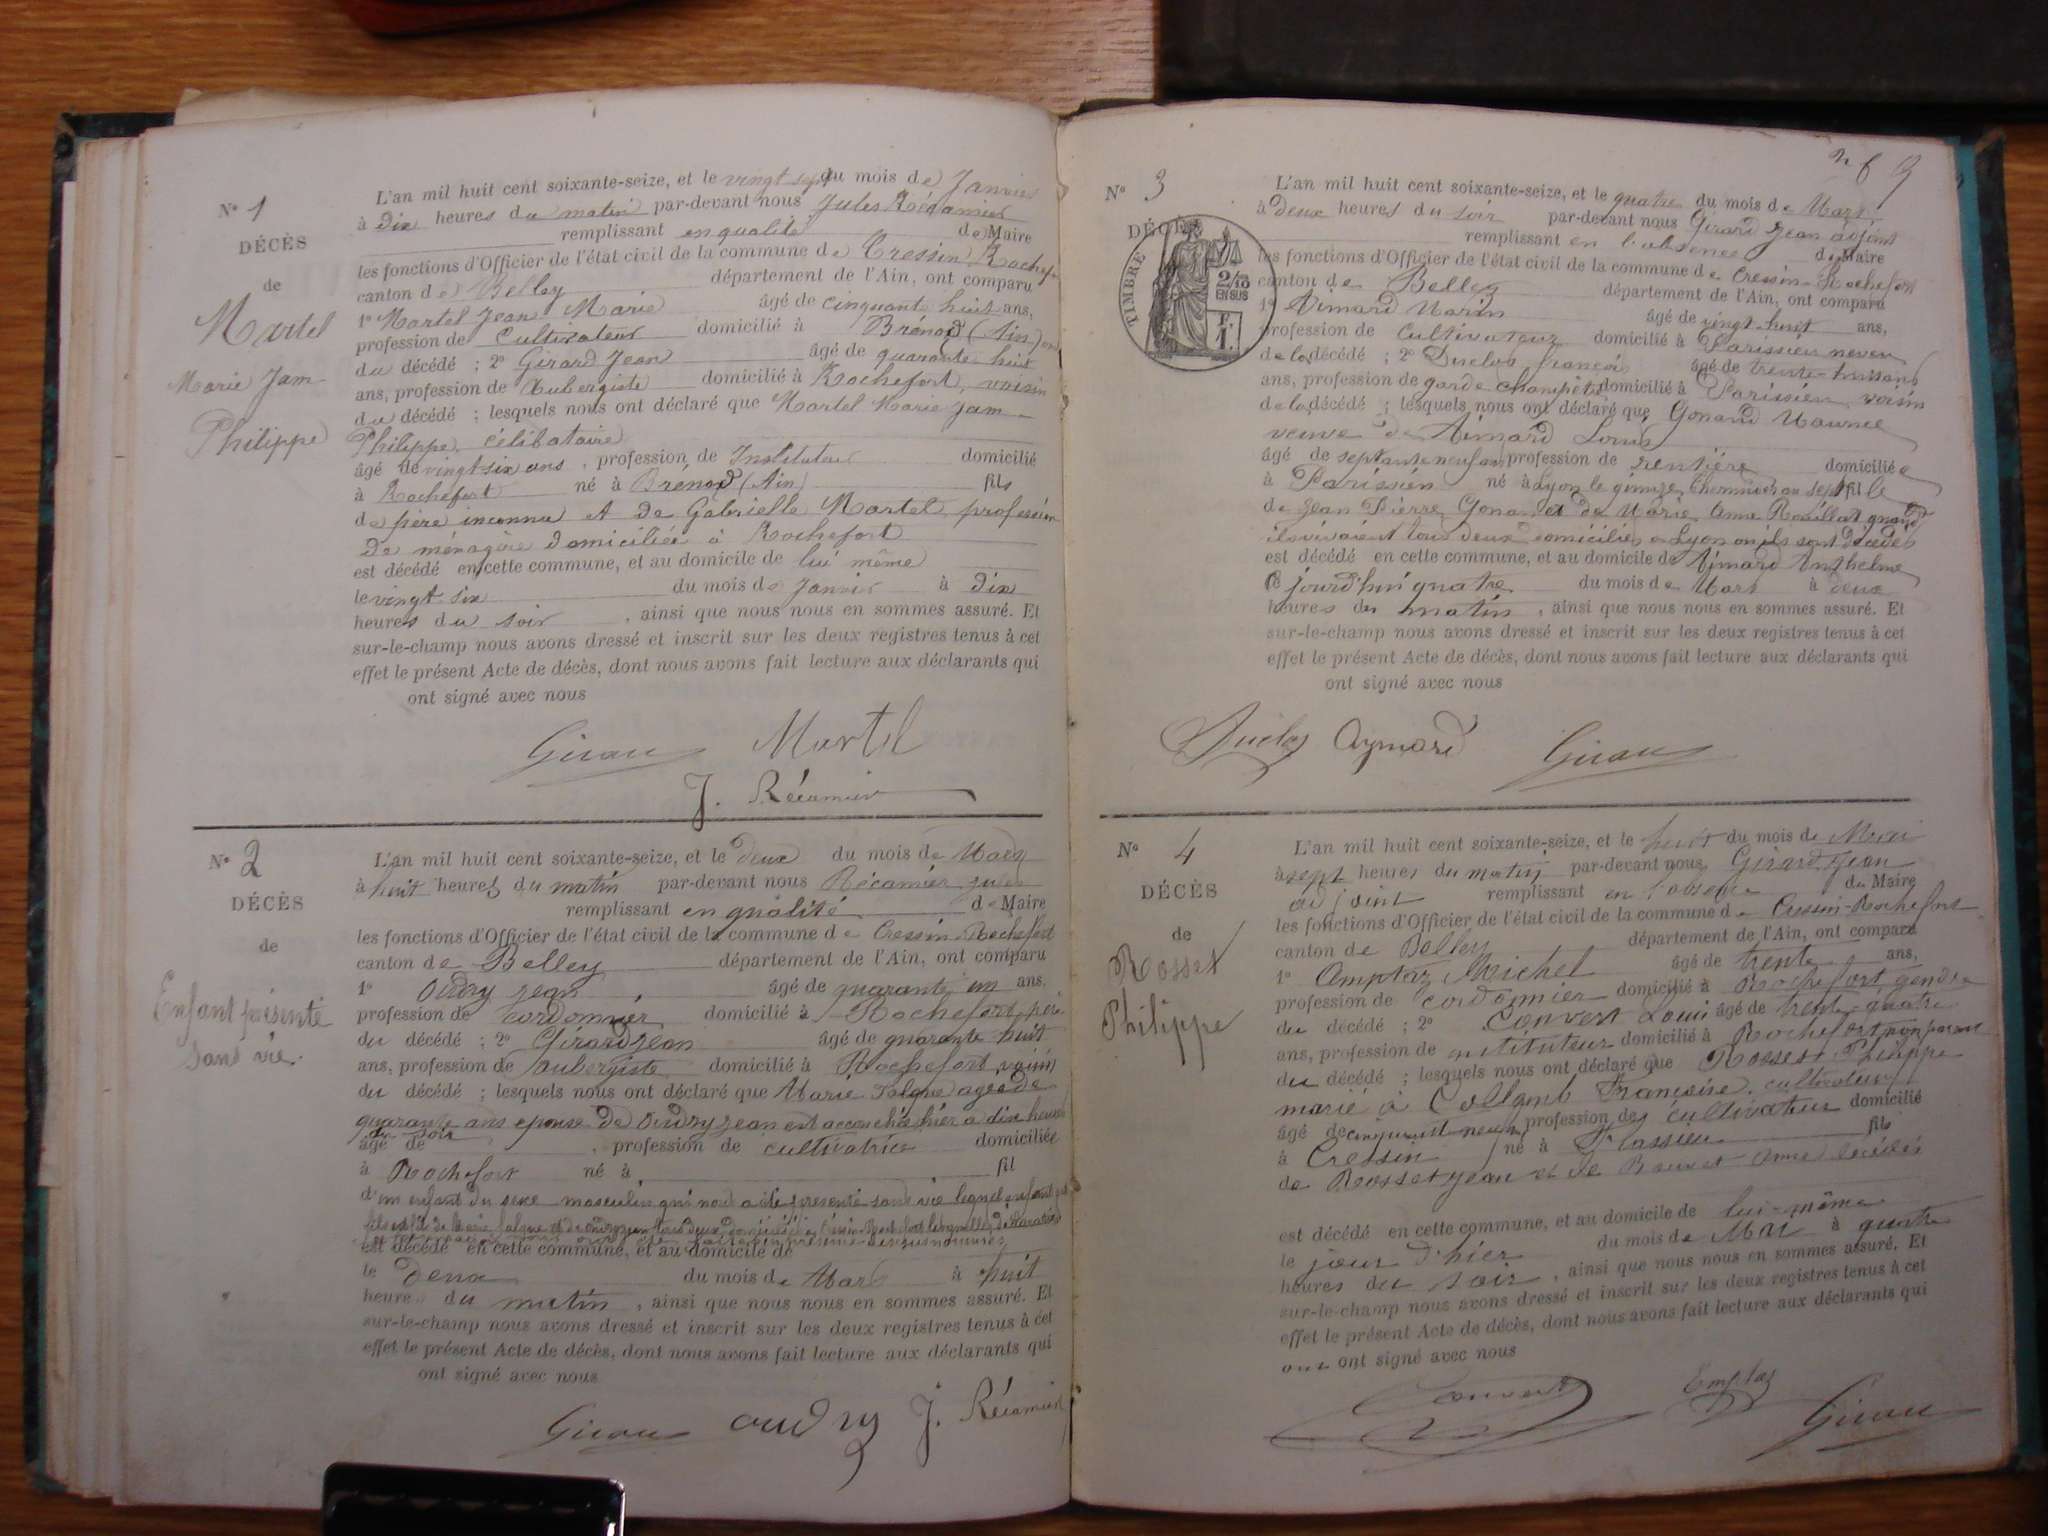 N° 1
DÉCÈS
de
Martel
Marie Jam
Philippe
L'an mil huit cent soixante-seize, et le vingt sept du mois de Janvier
à dix heures du matin par-devant nous Jules Récamier
remplissant en qualité de Maire
les fonctions d'Officier de l'état civil de la commune de Cressin Rochefort
canton de Belley département de l'Ain, ont comparu
1° Martel Jean Marie âgé de cinquante huit ans,
profession de Cultivateur domicilié à Brénod (Ain)
du décédé ; 2° Girard Jean âgé de quarante huit
ans, profession de Aubergiste domicilié à Rochefort, voisin
du décédé ; lesquels nous ont déclaré que Martel Marie Jam
Philippe, célibataire
âgé de vingt-six ans, profession de Instituteur domicilié
à Rochefort né à Brénod (Ain) fils
de père inconnu et de Gabrielle Martel profession
de ménagère domiciliée à Rochefort
est décédé en cette commune, et au domicile de lui même
le vingt six du mois de Janvier à dix
heures du soir, ainsi que nous nous en sommes assuré. Et
sur-le-champ nous avons dressé et inscrit sur les deux registres tenus à cet
effet le présent Acte de décès, dont nous avons fait lecture aux déclarants qui
ont signé avec nous
Girard Martel
J. Récamier
N° 2
DÉCÈS
de
Enfant présenté
sans vie.
L'an mil huit cent soixante-seize, et le deux du mois de Mars
à huit heures du matin par-devant nous Récamier Jules
remplissant en qualité de Maire
les fonctions d'Officier de l'état civil de la commune de Cressin-Rochefort
canton de Belley département de l'Ain, ont comparu
1° Oudry Jean âgé de quarante un ans,
profession de cordonnier domicilié à Rochefort, père
du décédé ; 2° Girard Jean âgé de quarante huit
ans, profession de aubergiste domicilié à Rochefort voisin
du décédé ; lesquels nous ont déclaré que Marie Falque agée de
quarante ans epouse de Oudry Jean est accouchée hier a dix heures
du soir
âgé de , profession de cultivatrice domiciliée
à Rochefort né à fil
d'un enfant du sexe masculin qui nous a été présenté sans vie lequel enfant est
fils de Marie Falque et de Oudry Jean tous deux domiciliés à Cressin-Rochefort
est décédé en cette commune, et au domicile de
le deux du mois de Mars à huit
heures du matin, ainsi que nous nous en sommes assuré. Et
sur-le-champ nous avons dressé et inscrit sur les deux registres tenus à cet
effet le présent Acte de décès, dont nous avons fait lecture aux déclarants qui
ont signé avec nous
Girard oudry J. Récamier
N° 3
DÉCÈS
TIMBRE
2/10
EN SUS
F.
1.
L'an mil huit cent soixante-seize, et le quatre du mois de Mars
à deux heures du soir par-devant nous Girard Jean adjoint
remplissant en l'absence du Maire
les fonctions d'Officier de l'état civil de la commune de Cressin-Rochefort
canton de Belley département de l'Ain, ont comparu
1° Aimard Marin âgé de vingt-huit ans,
profession de Cultivateur domicilié à Parissieu neveu
de la décédé ; 2° Duclos françois âgé de trente-huit ans
ans, profession de garde champêtre domicilié à Parissieu, voisin
de la décédé ; lesquels nous ont déclaré que Gonard
veuve de Aimard Louis
âgé de septante neuf ans profession de rentière domiciliée
à Parissieu né à Lyon le quinze Thermidor an sept fille
de Jean Pierre Gonard et de Marie Anne quand
ils vivaient tous deux domiciliés à Lyon où ils sont décédés
est décédé en cette commune, et au domicile de Aimard Anthelme
le jourd'hui quatre du mois de Mars à deux
heures du matin, ainsi que nous nous en sommes assuré. Et
sur-le-champ nous avons dressé et inscrit sur les deux registres tenus à cet
effet le présent Acte de décès, dont nous avons fait lecture aux déclarants qui
ont signé avec nous
Duclos Aymard Girard
N° 4
DÉCÈS
de
Rosset
Philippe
L'an mil huit cent soixante-seize, et le huit du mois de Mai
à sept heures du matin par-devant nous Girard Jean
adjoint remplissant en l'absence du Maire
les fonctions d'Officier de l'état civil de la commune de Cressin-Rochefort
canton de Belley département de l'Ain, ont comparu
1° Amptaz Michel âgé de trente ans,
profession de cordonnier domicilié à Rochefort, gendre
du décédé ; 2° Convert Louis âgé de trente-quatre
ans, profession de instituteur domicilié à Rochefort, non parent
du décédé ; lesquels nous ont déclaré que Rosset Philippe
marié à Collomb Françoise, cultivateur
âgé de cinquante neuf profession de cultivateur domicilié
à Cressin né à fils
de Rosset Jean et de Anne décédés
est décédé en cette commune, et au domicile de lui-même
le jour d'hier du mois de Mai à quatre
heures du soir, ainsi que nous nous en sommes assuré. Et
sur-le-champ nous avons dressé et inscrit sur les deux registres tenus à cet
effet le présent Acte de décès, dont nous avons fait lecture aux déclarants qui
ont ont signé avec nous
Convert Emptaz Girard